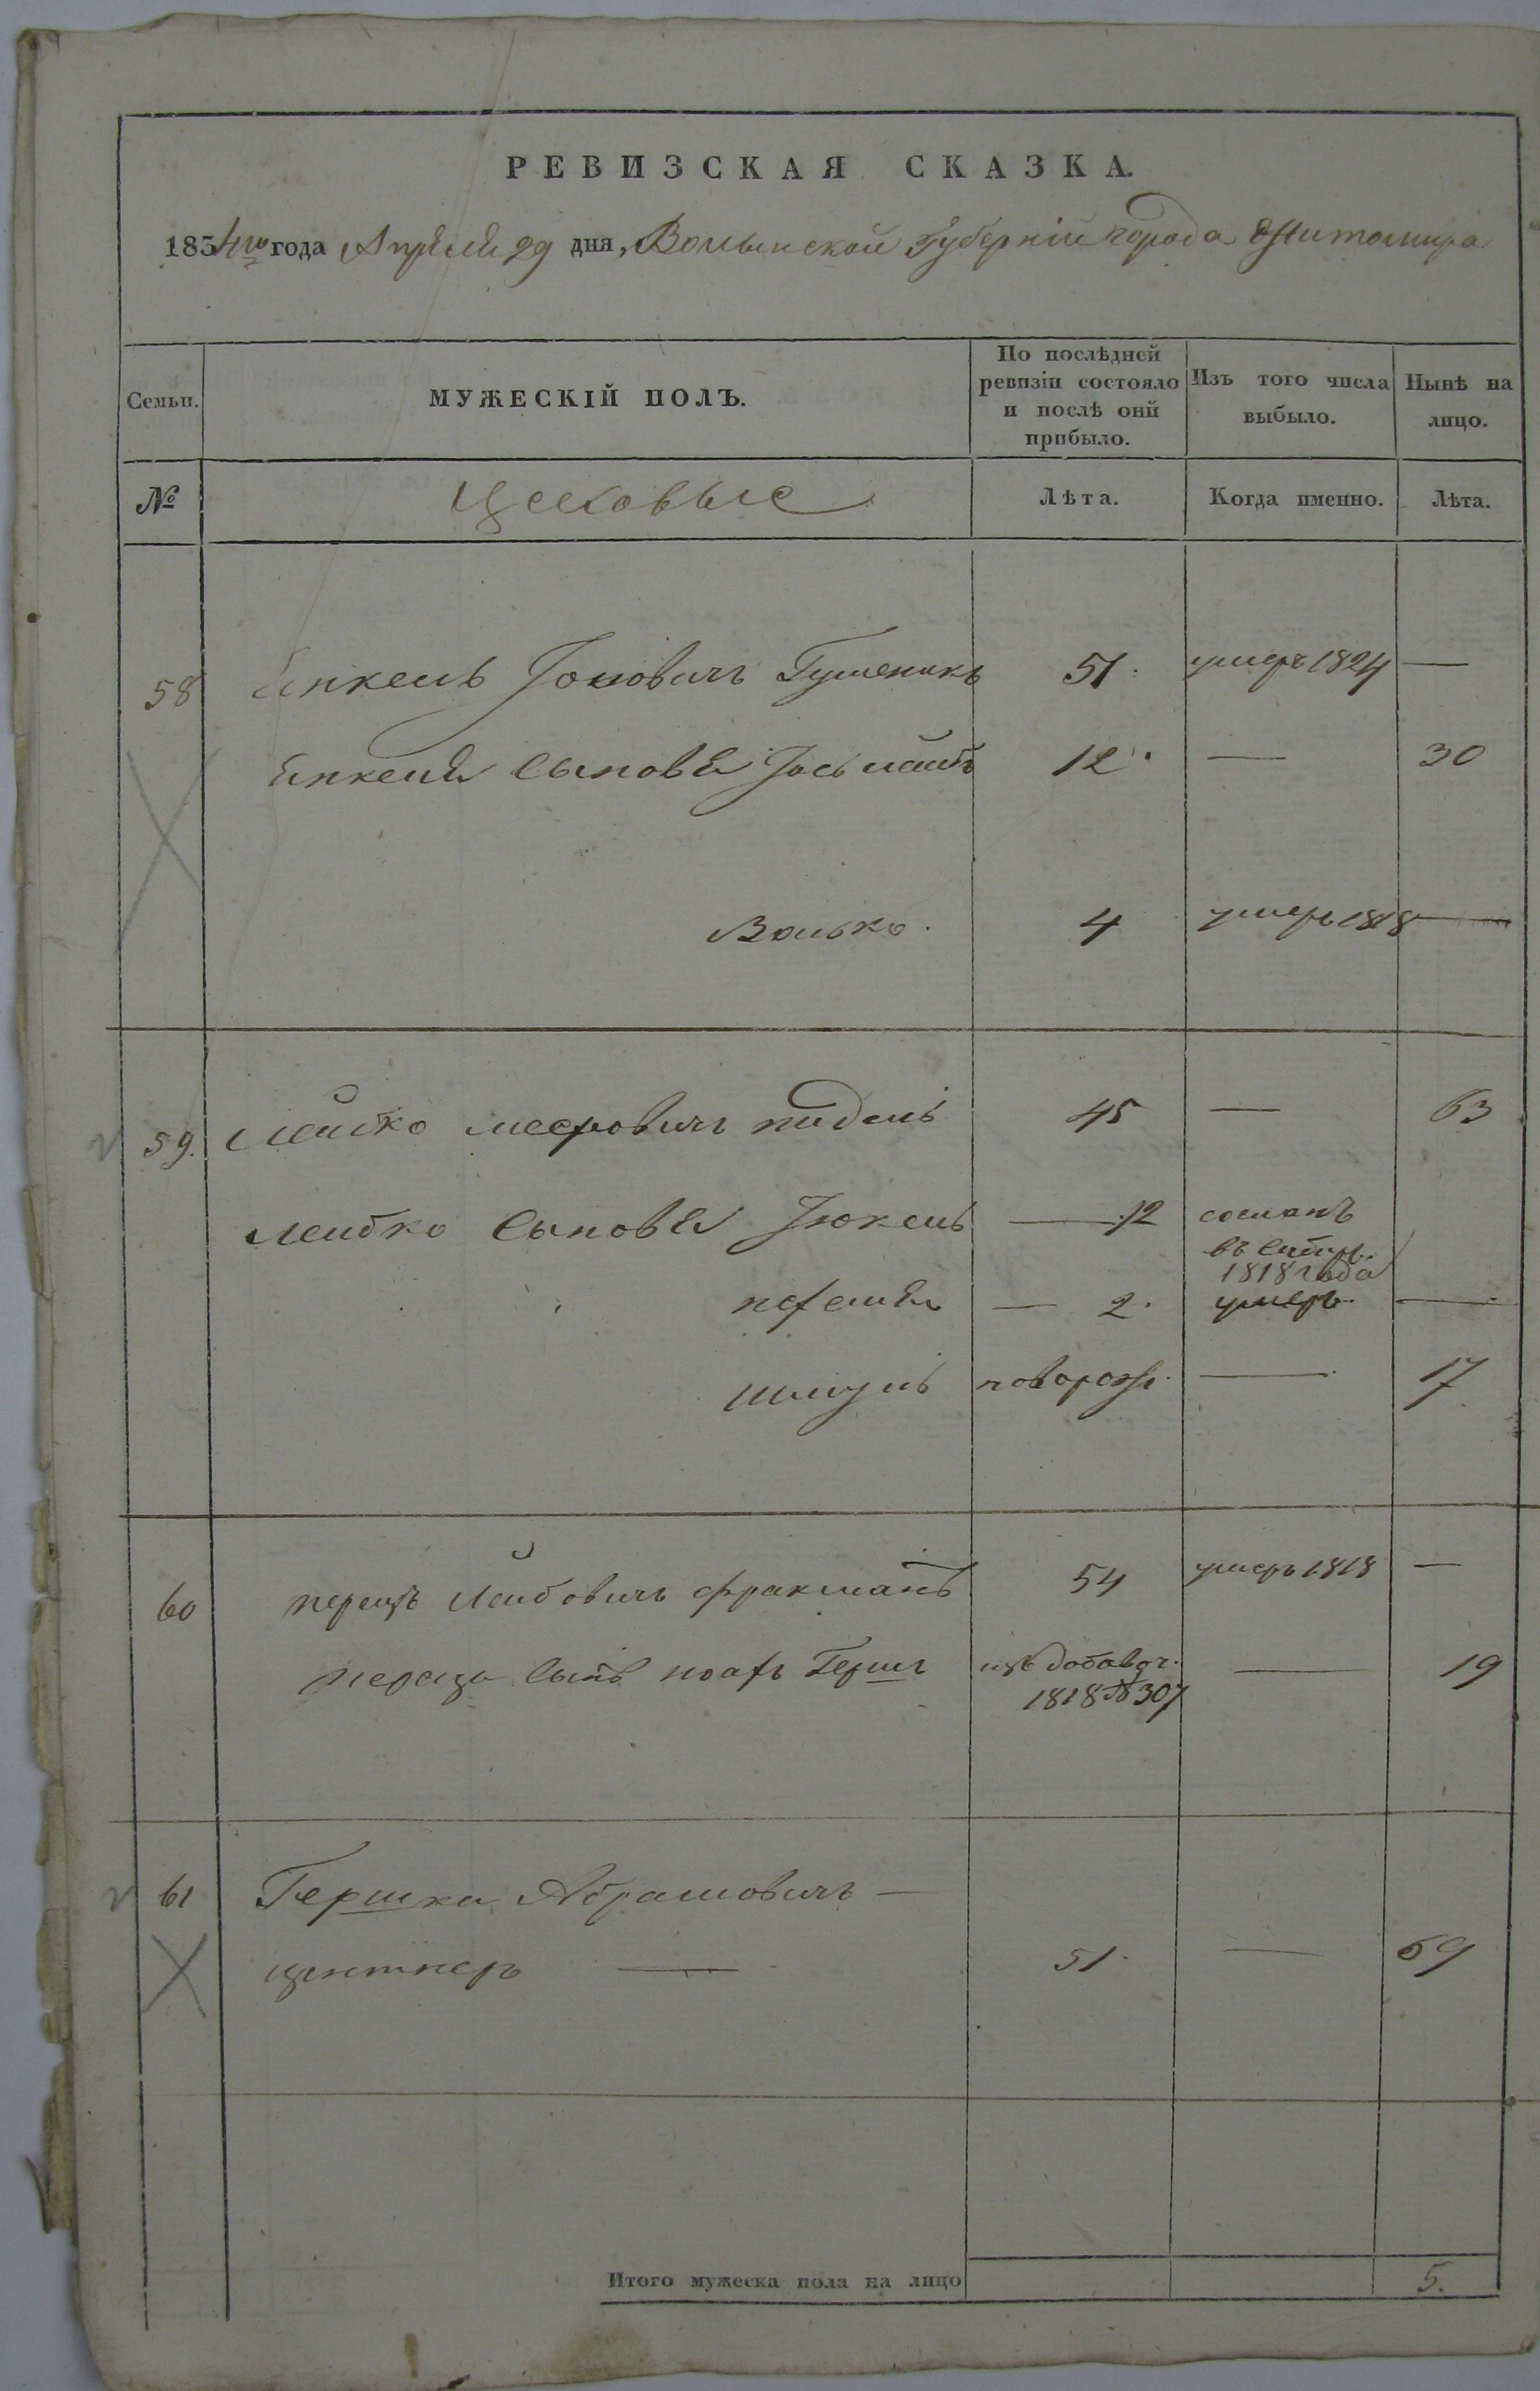 РЕВИЗСКАЯ СКАЗКА.
1834го года Апреля 29 дня, Волынской Губернiи города Житомира
Семьи.
МУЖЕСКIЙ ПОЛЪ.
По послѣдней ревизiи состояло и послѣ онй прибыло.
Изъ того числа выбыло.
Нынѣ на лицо.
№
Цеховые
Лѣта.
Когда именно.
Лѣта.
58 Янкель Iосиовичъ 51 умеръ 1824 —
Янкеля Сыновья 12 — 30
Волько. 4 умеръ 1818 —
59. Лейбко Мееровичъ 45 — 63
Лейбко Сыновья — 12 сосланъ
въ Сибирь.
1818 года
— 2. умеръ. —
Шмуль новорож. — 17
60 Перецъ Лейбовичъ Фракманъ 54 умеръ 1818 —
Переца Сынъ Герш изъ добавоч. — 19
1818 № 307
61 Гершка Абрамовичъ —
Центнеръ — 51. — 69
Итого мужеска пола на лицо 5.